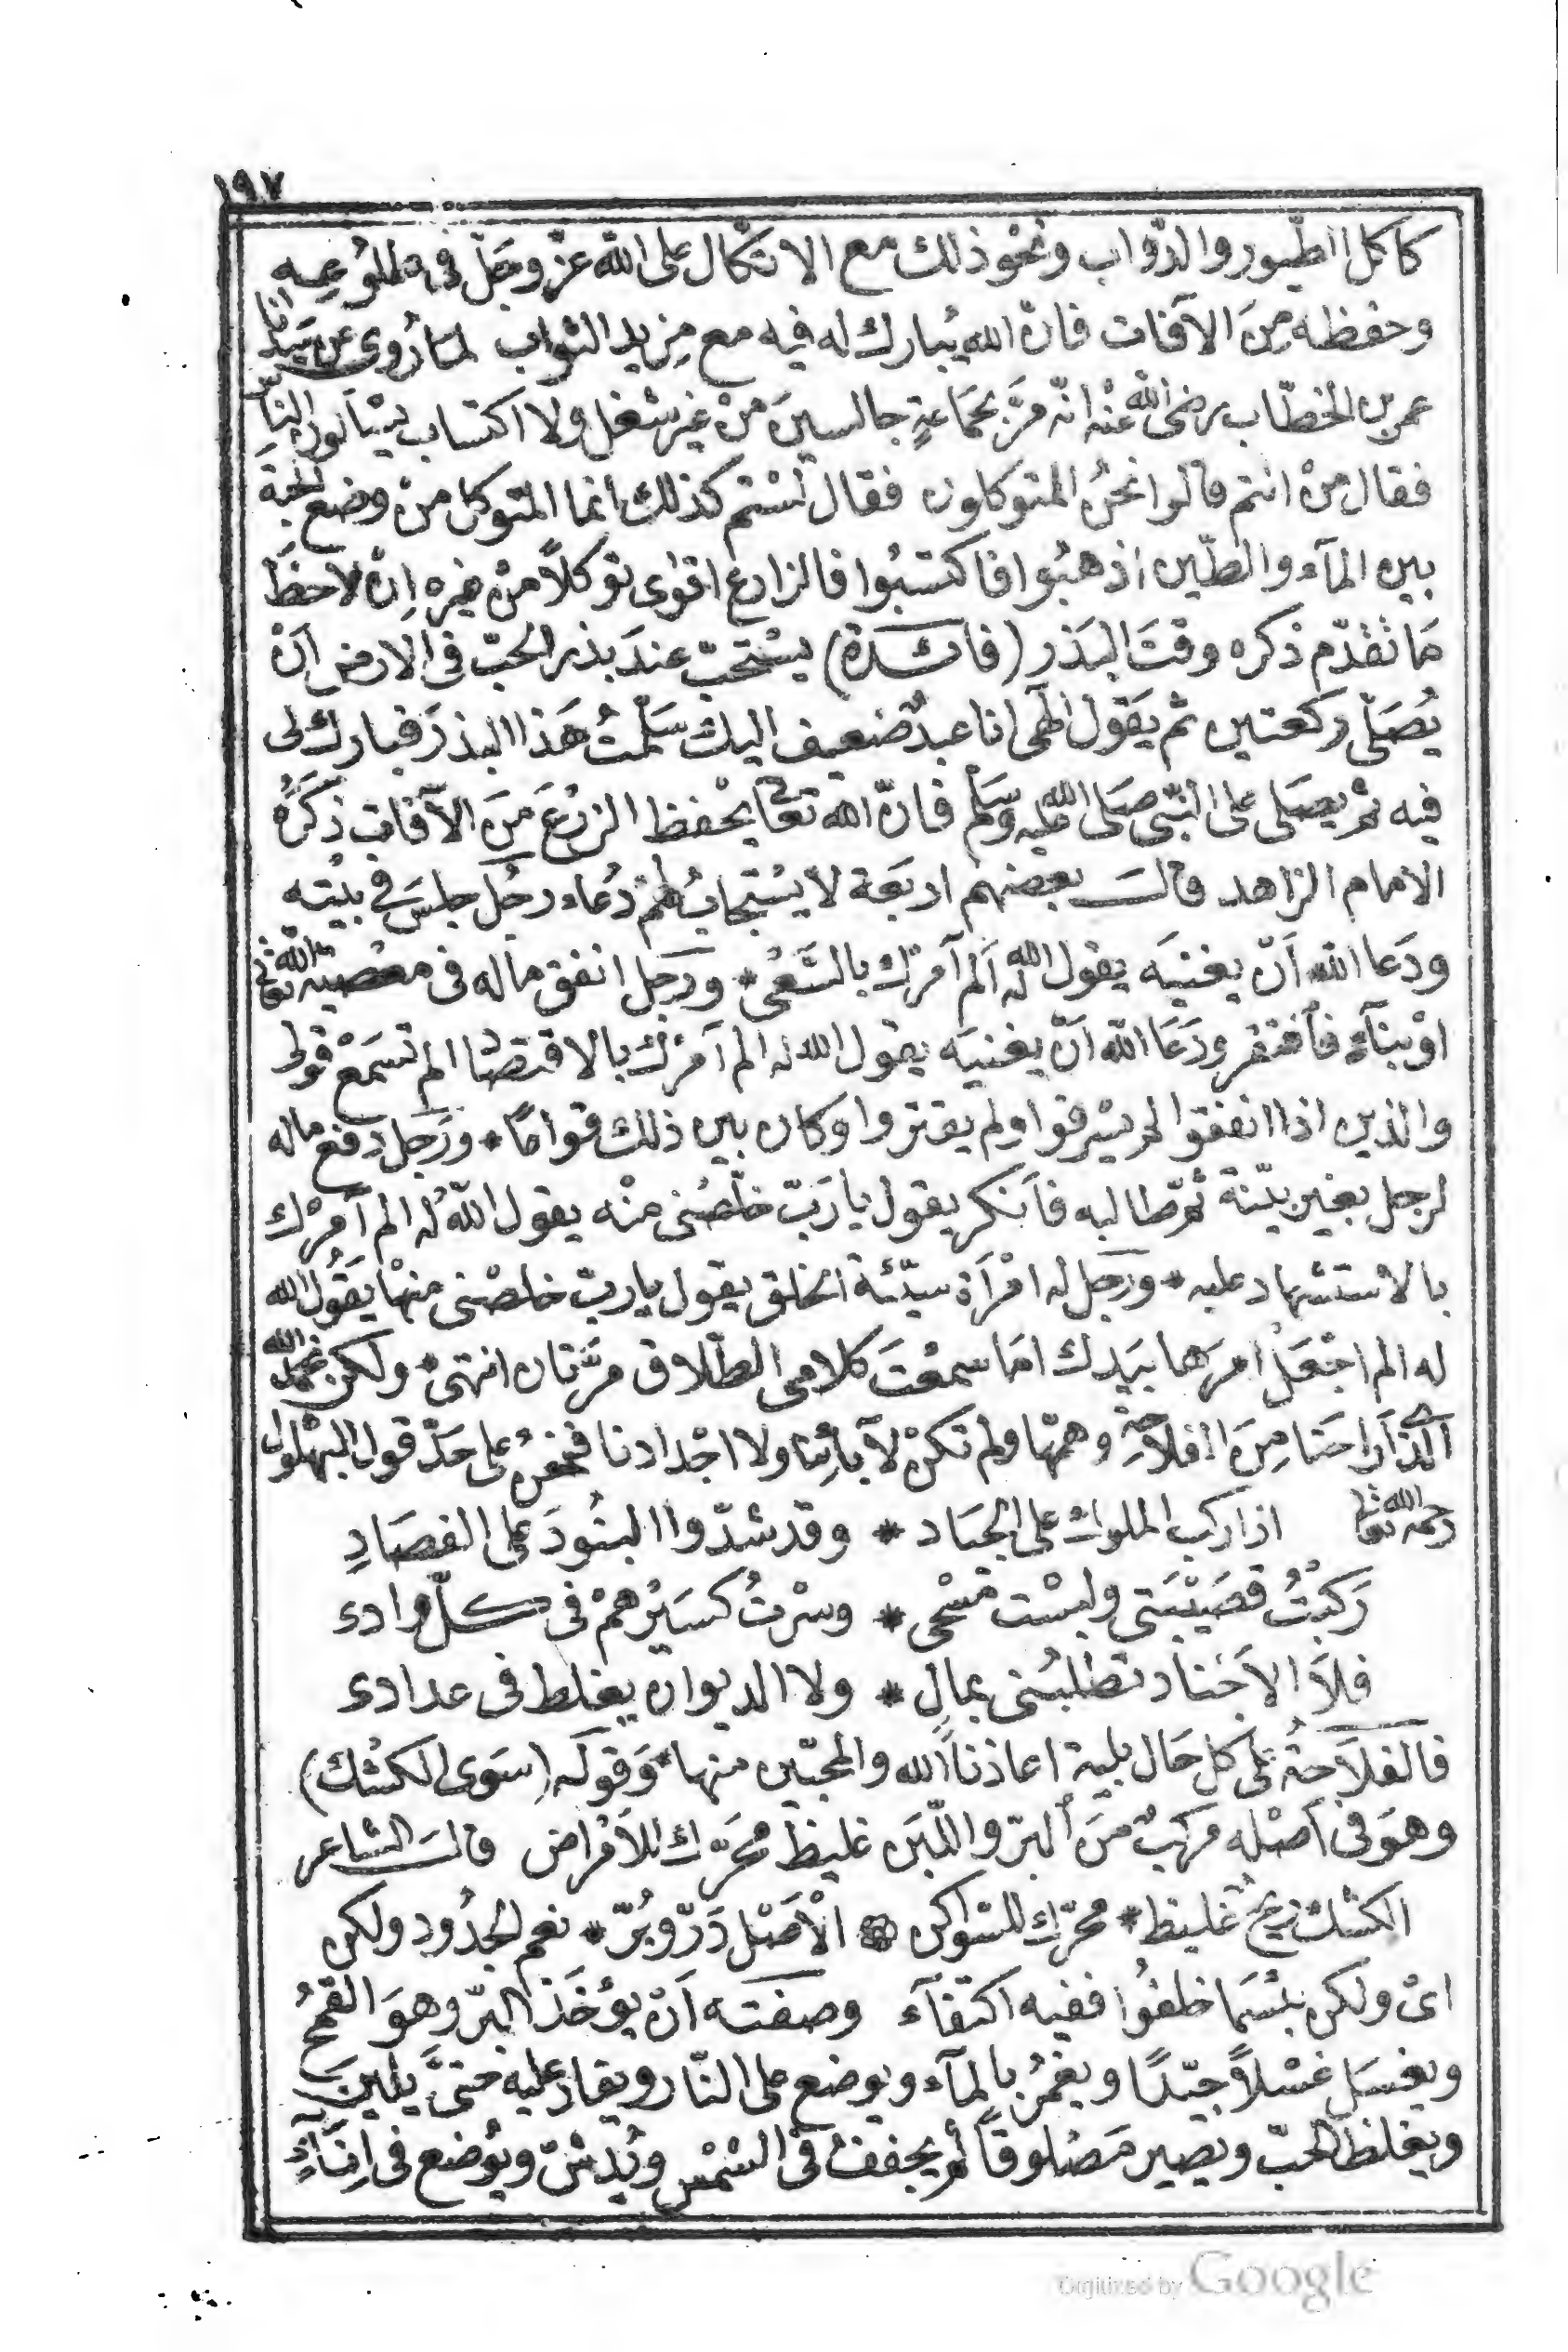 ١٩٧
كاكل الطيور والدّواب ونحْو ذلك مع الاتكال على الله عزّ وجلّ فى طلوعه
وحفظه مِنَ الآفات فانّ الله يُبارك له فيه مع مزيد الثواب لما رُوى عن سَيّدنا
عمر بن الخطّاب رضى الله عنْه انّه مَرّ بجمَاعةٍ جالسينَ منْ غير شغل ولا اكتساب يسْألون النّاس
فقال منْ انتم قالوا نحنُ المتوكلون فقال لسْتم كذلك انما المتوكل منْ وضع الحبة
بين المآء والطّين اذهبُوا فاكتسبُوا فالزارع اقوى توكلاً منْ غيره اِنْ لاحظَ
مَا تقدّم ذكره وقتَ البَذر (فائدة) يسْتحبّ عندَ بذر الحبّ فى الارض اَنْ
يُصَلّى ركعتين ثم يقول الٰهى انا عبدٌ ضعيف اليك سَلّمْتُ هَذا البذرَ فبارك لى
فيه ثم يصَلى على النّبى صَلى الله عليه وسَلم فانّ الله تعَالى يحْفظ الزرْعَ مِنَ الآفات ذكرَهُ
الامام الزاهد قالَ بعضهم اربَعة لا يسْتجابُ لهُمْ دُعاء رجُل جلسَ فى بيْته
ودَعا الله اَنْ يغنيَه يقول الله له اَلم آمرْك بالسَّعْى * ورَجل انفق ماله فى معْصية الله تعالى
اوْ بنآءٍ فأفتقر ودَعَا الله اَنْ يغنيَه يقول الله له الم آمرْك بالاقتصاد الم تسمَعْ قولى
والذين اذا انفقوا لم يسْرفوا ولم يقتروا وكان بين ذلك قوامًا * ورَجل دفع ماله
لرجل بغير بيّنة ثمّ طالبه فأنكر يقول يا رَبّ خلّصْنى منْه يقول اللّه لهُ الم آمرْك
بالاسْتشهاد عليه * ورَجل له امْرأة سيّئة الخلق يقول يارَبّ خلصْنى منهَا يقُولُ الله
له الم اجْعَلْ امرَها بيَدك امَا سمعْتَ كلامى الطّلاق مرَّتان انتهى * ولكن نحمَد الله
الذى اَراحنَا مِنَ الفلاحَةِ وهمّها ولم تكنْ لآبائنا ولا اجْدادنا فنحْنُ على حَدّ قول البهْلول
رحمَه الله تعالى اذا ركب الملوك على الجيَاد * وقد شدّوا البنُودَ على القصَادِ
رَكبْتُ قصَيْبَتى ولبسْت مسْحى * وسرْتُ كسَيْرهمْ فى كلّ وادى
فلاَ الاَجْناد تطلبُنى بمال * ولا الديوان يغلط فى عدادى
فالفلاَحةُ على كل حَال بلية اعاذنا الله والمحبّين منها * وَقوله (سَوى الكشْك)
وهوَ فى اَصْله مركبٌ منَ البرّ واللّبَن غليظ محَرّك للاَمْراض قالَ الشاعر
الكشك ريحٌ غليظ * محرّك للسّواكن الْاَصْل دَرّ وبُرّ * نعم الجدُود ولكن
اىْ ولكن بئسْمَا خلفُوا ففيه اكتفآء وصفته اَنْ يؤخَذ البرّ وهوَ القمْحُ
ويغسَل غسْلاً جيّدًا ويغمرُ بالمآء ويوضع على النّار ويقاد عليه حتىَّ يلينَ
ويغلظ الحبّ ويصير مَصْلوقاً ثم يجففُ فى الشّمْس ويُدشّ ويُوضع فى اِنَآءٍ
Digitized by Google